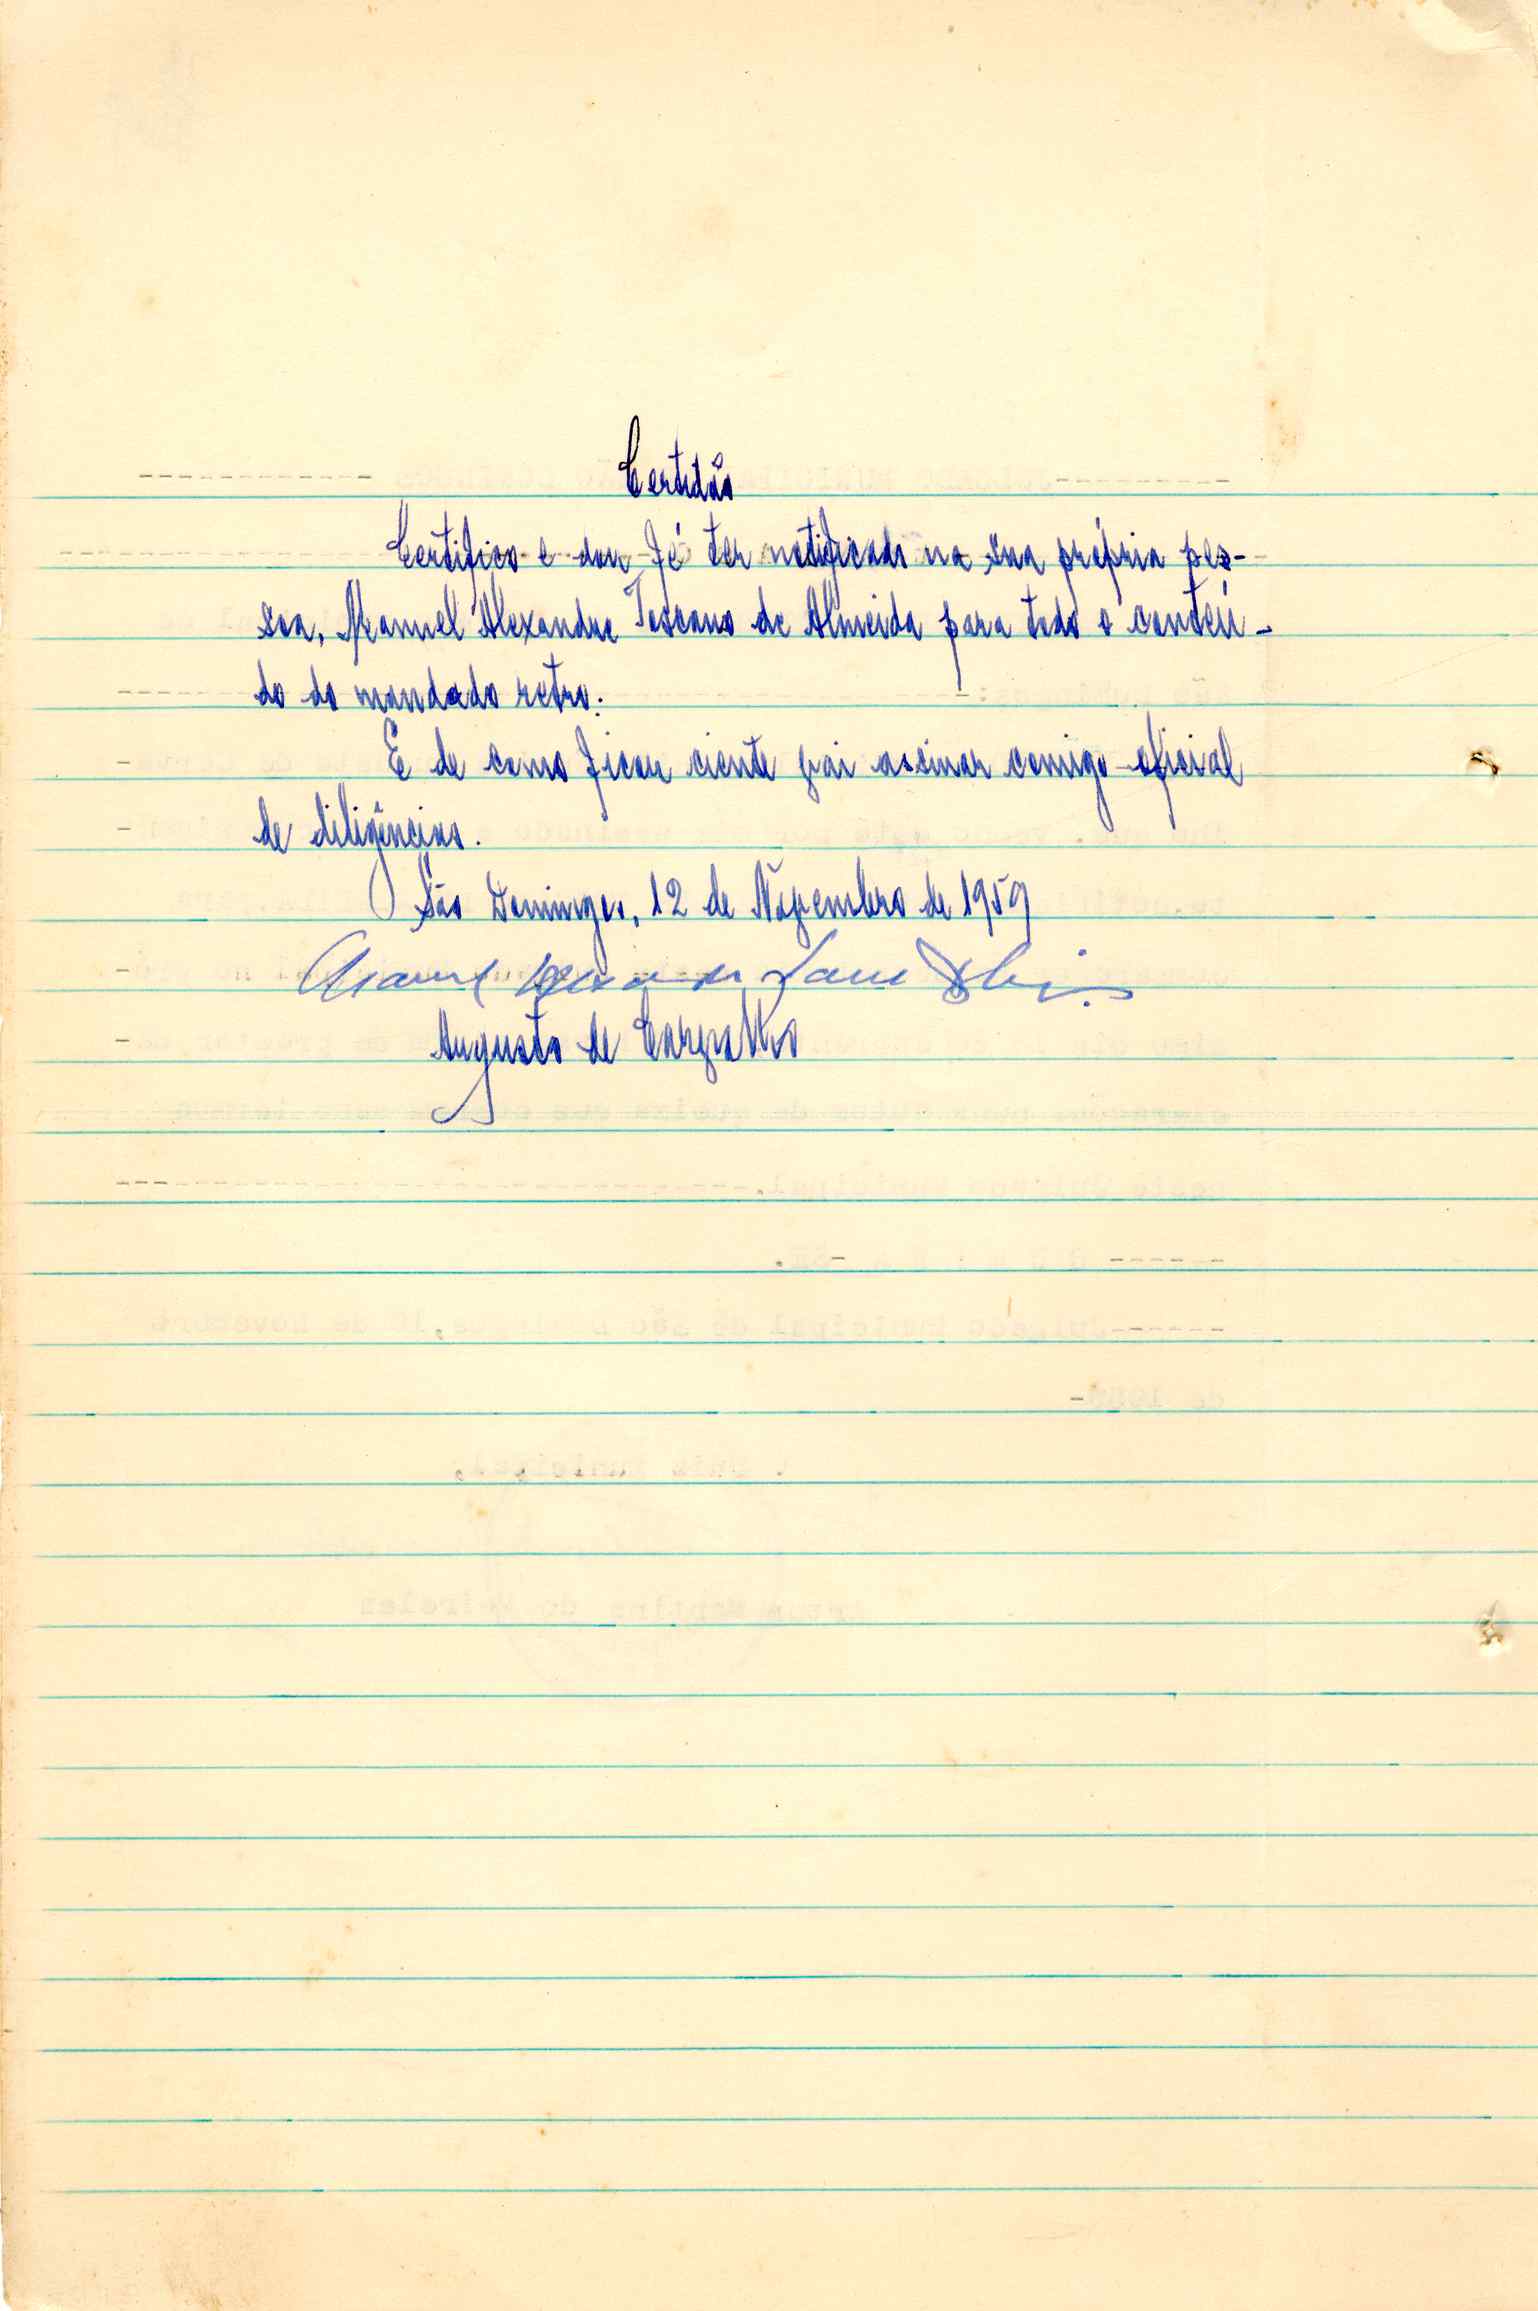 Certidão
Certifico e dou fé ter notificado na sua própria pes-
soa, Manuel Alexandre Toscano de Almeida para todo o conteú-
do do mandado retro.
E de como ficou ciente vai assinar comigo oficial
de diligências.
São Domingos, 12 de Novembro de 1959
Manuel Alexandre
Augusto de Carvalho